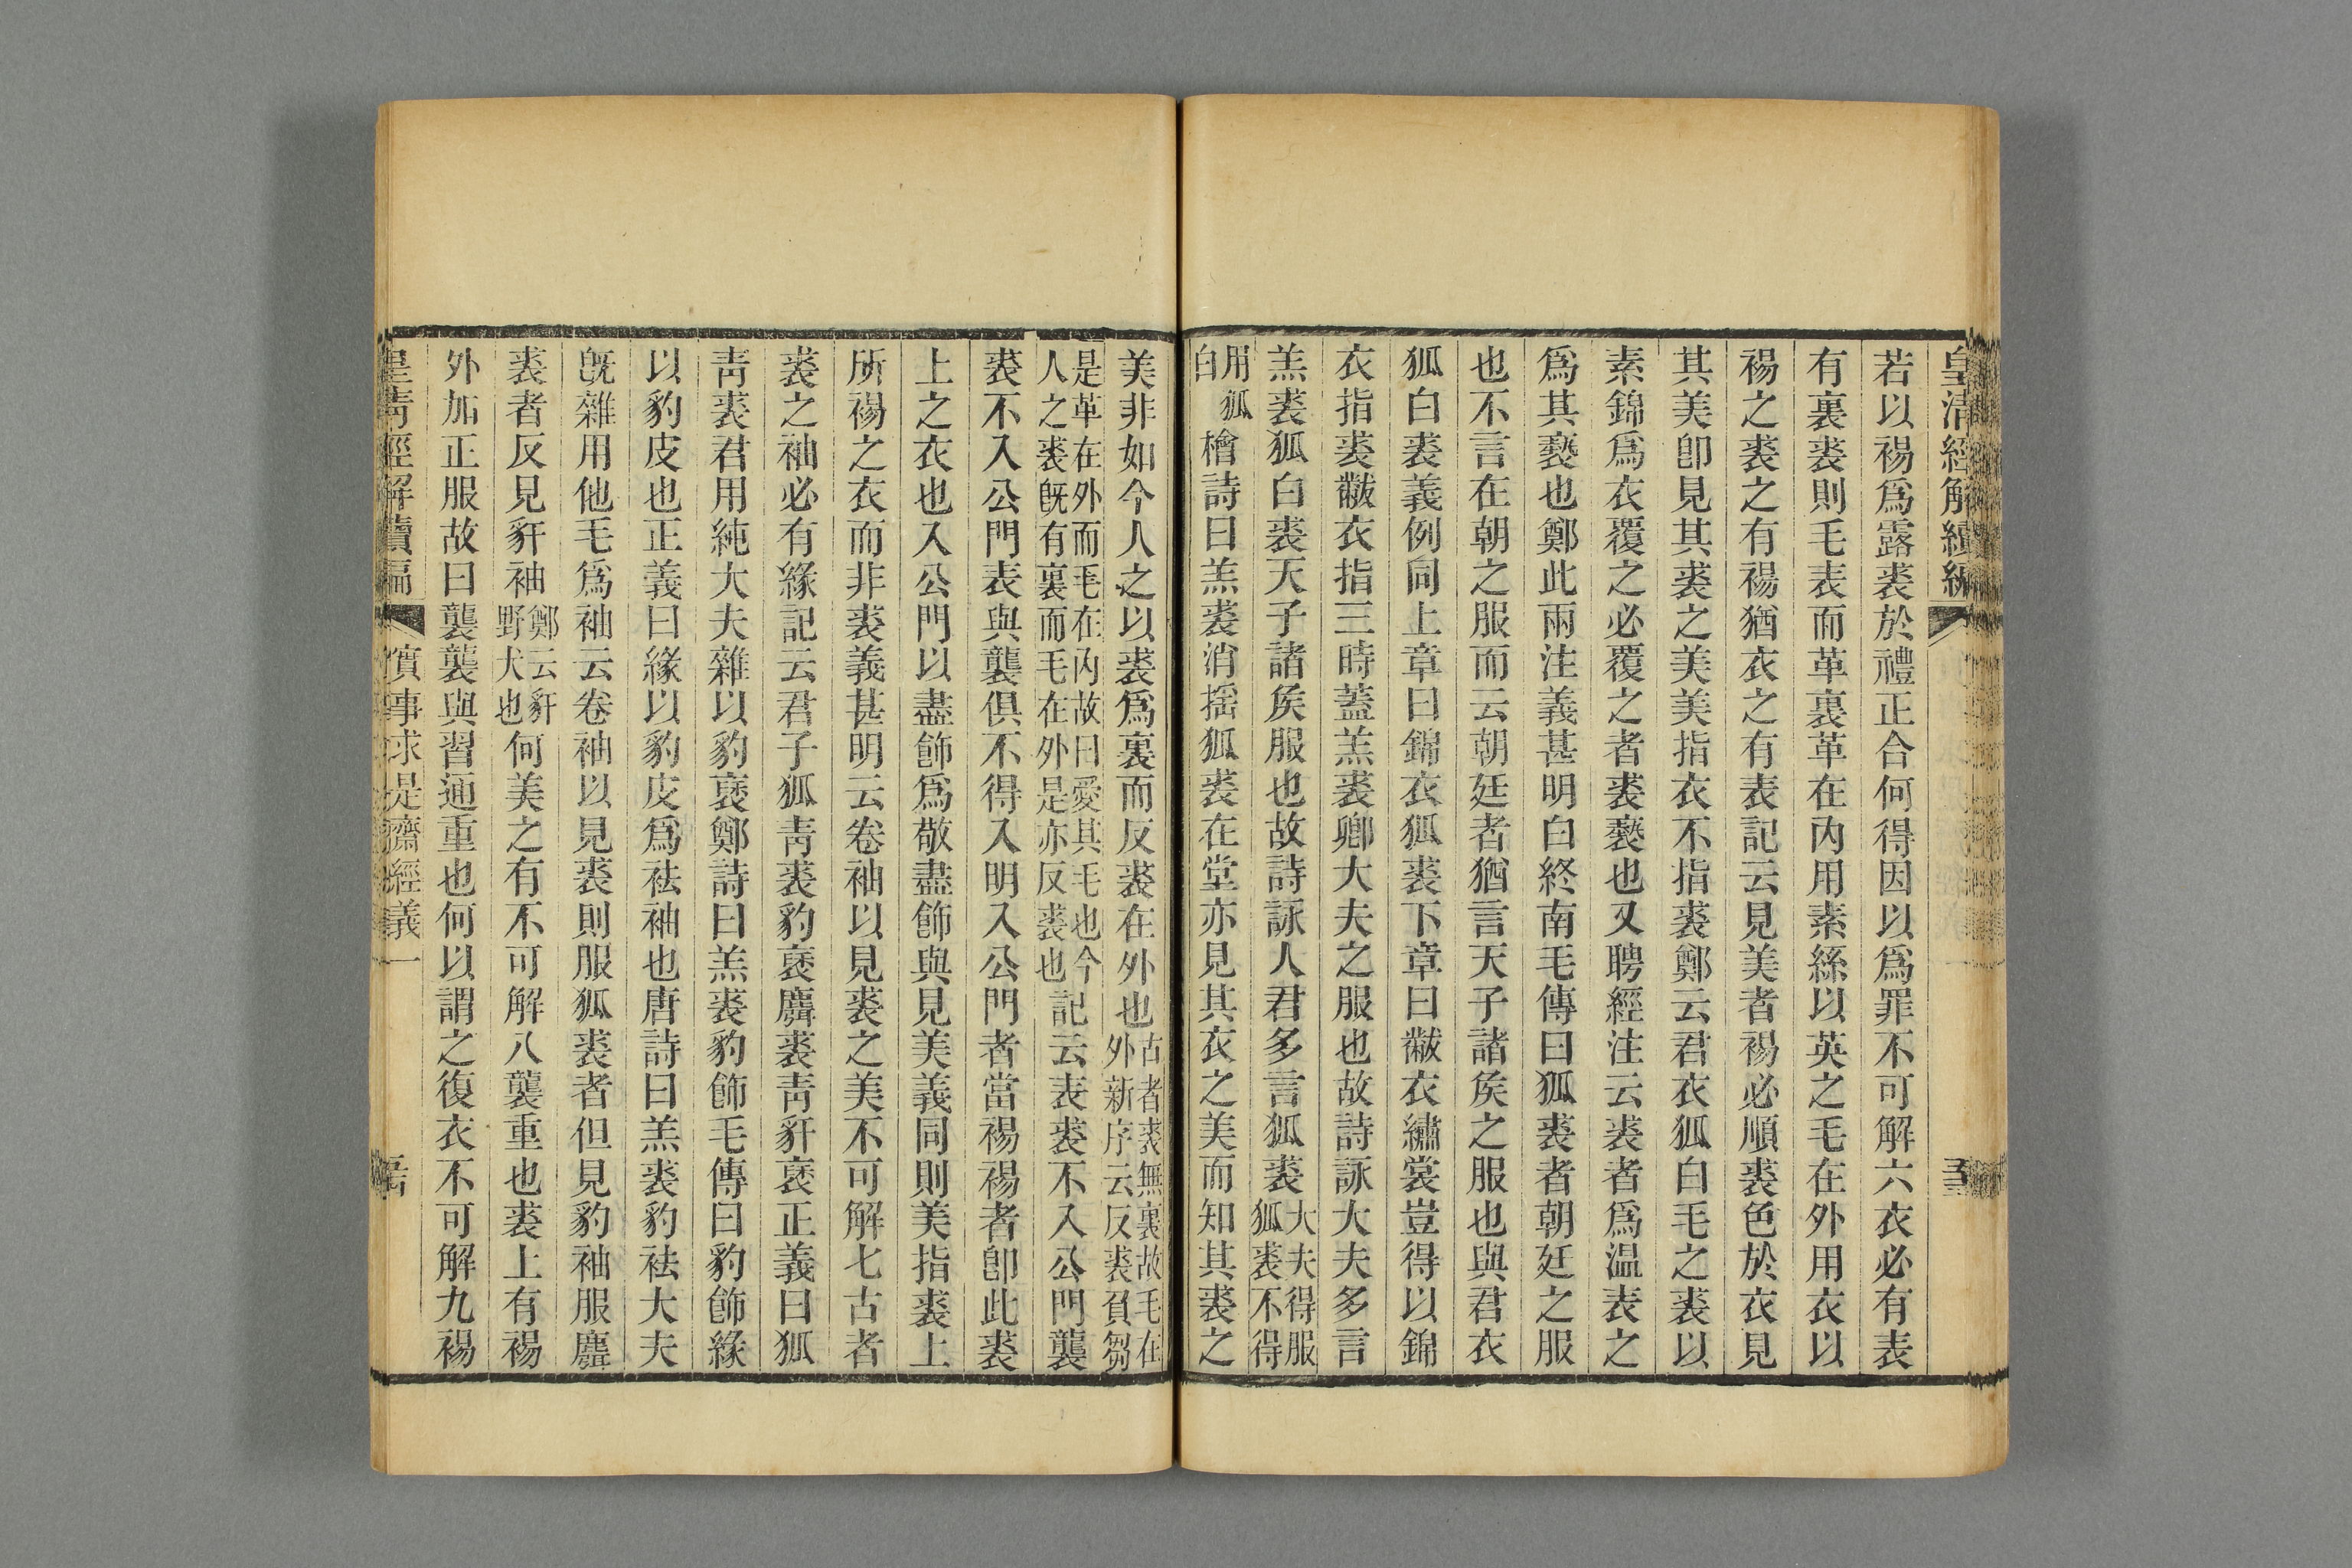 皇清經解續編
若以裼爲露裘於禮正合何得因以爲罪不可解六衣必有表
有裏裘則毛表而革裏革在内用素絲以英之毛在外用衣以
裼之裘之有裼猶衣之有表記云見美者裼必順裘色於衣見
其美卽見其裘之美美指衣不指裘鄭云君衣狐白毛之裘以
素錦爲衣覆之必覆之者裘褻也又聘經注云裘者爲温表之
爲其褻也鄭此兩注義甚明白終南毛傳曰狐裘者朝廷之服
也不言在朝之服而云朝廷者猶言天子諸矦之服也與君衣
狐白裘義例同上章曰錦衣狐裘下章曰黻衣繡裳豈得以錦
衣指裘黻衣指三時蓋羔裘卿大夫之服也故詩詠大夫多言
羔裘狐白裘天子諸矦服也故詩詠人君多言狐裘大夫得服狐裘不得
用狐白檜詩曰羔裘消摇狐裘在堂亦見其衣之美而知其裘之
美非如今人之以裘爲裏而反裘在外也古者裘無裏故毛在外新序云反裘負芻
是革在外而毛在内故曰愛其毛也今人之裘旣有裏而毛在外是亦反裘也記云表裘不入公門襲
裘不入公門表與襲俱不得入明入公門者當裼裼者卽此裘
上之衣也入公門以盡飾爲敬盡飾與見美義同則美指裘上
所裼之衣而非裘義甚明云卷袖以見裘之美不可解七古者
裘之袖必有緣記云君子狐靑裘豹褎麛裘靑豻褎正義曰狐
靑裘君用純大夫雜以豹褎鄭詩曰羔裘豹飾毛傳曰豹飾緣
以豹皮也正義曰緣以豹皮爲袪袖也唐詩曰羔裘豹袪大夫
旣雜用他毛爲袖云卷袖以見裘則服狐裘者但見豹袖服麛
裘者反見豻袖鄭云豻野犬也何美之有不可解八襲重也裘上有裼
外加正服故曰襲襲與習通重也何以謂之復衣不可解九裼
皇清經解續編
實事求是齋經義一